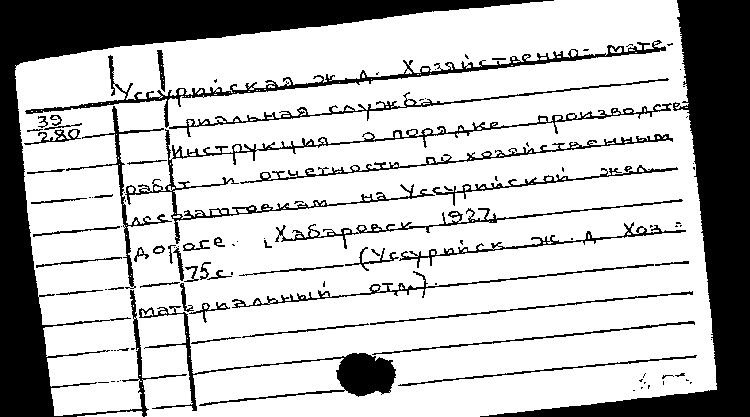 Уссурийская ж.д. Хозяйственно-мате-
39
2.80
риальная служба.
Инструкция о порядке производства
работ и отчетности по хозяйственным
лесозаготовкам на Уссурийской жел.
дороге. [Хабаровск, 1927,
75 с. (Уссурийск ж.д Хоз.=
материальный отд.)